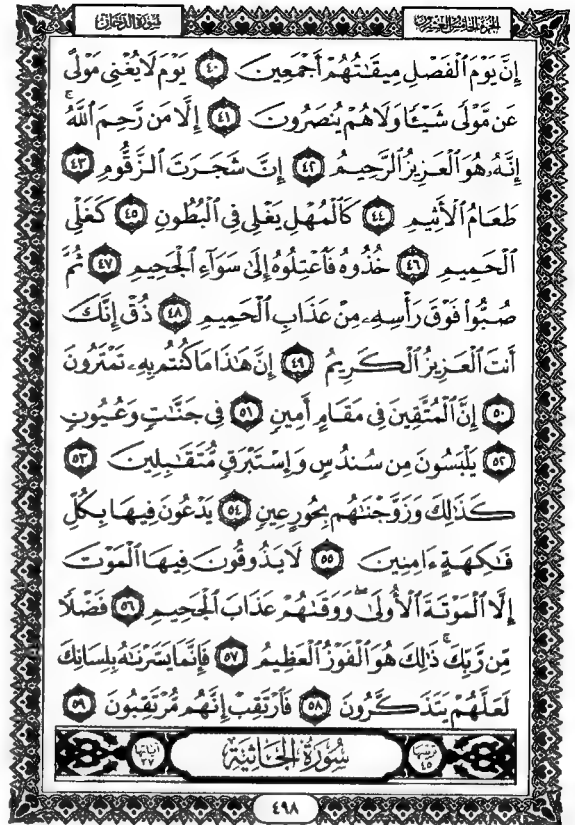 سُورَةُ الدُّخَانِ
الجُزْءُ الخَامِسُ وَالعِشْرُونَ
إِنَّ يَوْمَ ٱلْفَصْلِ مِيقَـٰتُهُمْ أَجْمَعِينَ ٤٠ يَوْمَ لَا يُغْنِى مَوْلًى
عَن مَّوْلًى شَيْـًٔا وَلَا هُمْ يُنصَرُونَ ٤١ إِلَّا مَن رَّحِمَ ٱللَّهُ ۚ
إِنَّهُۥ هُوَ ٱلْعَزِيزُ ٱلرَّحِيمُ ٤٢ إِنَّ شَجَرَتَ ٱلزَّقُّومِ ٤٣
طَعَامُ ٱلْأَثِيمِ ٤٤ كَٱلْمُهْلِ يَغْلِى فِى ٱلْبُطُونِ ٤٥ كَغَلْىِ
ٱلْحَمِيمِ ٤٦ خُذُوهُ فَٱعْتِلُوهُ إِلَىٰ سَوَآءِ ٱلْجَحِيمِ ٤٧ ثُمَّ
صُبُّوا۟ فَوْقَ رَأْسِهِۦ مِنْ عَذَابِ ٱلْحَمِيمِ ٤٨ ذُقْ إِنَّكَ
أَنتَ ٱلْعَزِيزُ ٱلْكَرِيمُ ٤٩ إِنَّ هَـٰذَا مَا كُنتُم بِهِۦ تَمْتَرُونَ
٥٠ إِنَّ ٱلْمُتَّقِينَ فِى مَقَامٍ أَمِينٍ ٥١ فِى جَنَّـٰتٍ وَعُيُونٍ
٥٢ يَلْبَسُونَ مِن سُندُسٍ وَإِسْتَبْرَقٍ مُّتَقَـٰبِلِينَ ٥٣
كَذَٰلِكَ وَزَوَّجْنَـٰهُم بِحُورٍ عِينٍ ٥٤ يَدْعُونَ فِيهَا بِكُلِّ
فَـٰكِهَةٍ ءَامِنِينَ ٥٥ لَا يَذُوقُونَ فِيهَا ٱلْمَوْتَ
إِلَّا ٱلْمَوْتَةَ ٱلْأُولَىٰ ۖ وَوَقَىٰهُمْ عَذَابَ ٱلْجَحِيمِ ٥٦ فَضْلًا
مِّن رَّبِّكَ ۚ ذَٰلِكَ هُوَ ٱلْفَوْزُ ٱلْعَظِيمُ ٥٧ فَإِنَّمَا يَسَّرْنَـٰهُ بِلِسَانِكَ
لَعَلَّهُمْ يَتَذَكَّرُونَ ٥٨ فَٱرْتَقِبْ إِنَّهُم مُّرْتَقِبُونَ ٥٩
ترتيبها ٤٥
سُورَةُ الجَاثِيَةِ
آياتها ٣٧
٤٩٨